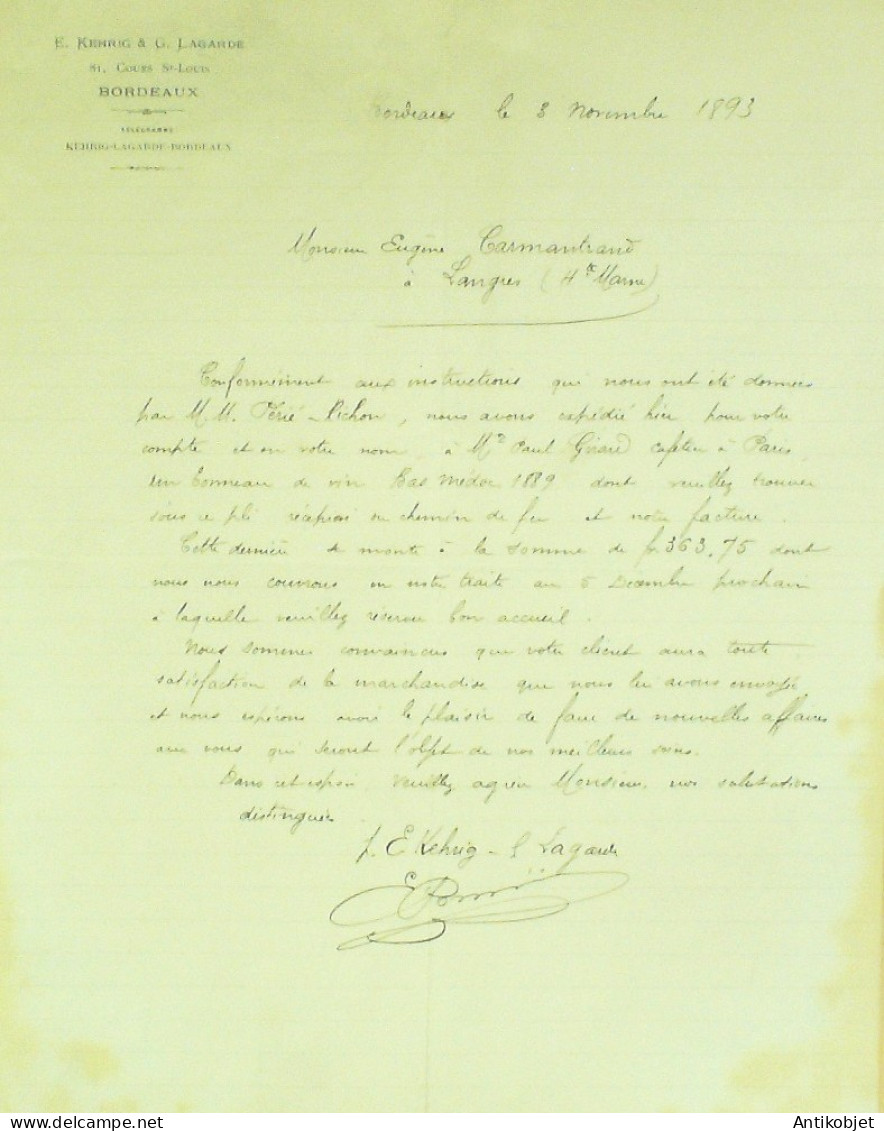 E. KEHRIG & G. LAGARDE
81, COURS ST-LOUIS
BORDEAUX
TÉLÉGRAMME
KEHRIG-LAGARDE-BORDEAUX
Bordeaux le 3 Novembre 1893
Monsieur Eugène Carmantrand
à Langres (Hte Marne)
Conformément aux instructions qui nous ont été données
par M.M. Périé-Pichon, nous avons expédié hier pour votre
compte et en votre nom, à Mr Paul Girard cafetier à Paris,
un tonneau de vin Bas Médoc 1889 dont veuillez trouver
sous ce pli récépissé du chemin de fer et notre facture.
Cette dernière se monte à la somme de f. 363,75 dont
nous nous couvrons en notre traite au 5 Décembre prochain
à laquelle veuillez réserver bon accueil.
Nous sommes convaincus que votre client aura toute
satisfaction de la marchandise que nous lui avons envoyée
et nous espérons avoir le plaisir de faire de nouvelles affaires
avec vous qui seront l'objet de nos meilleurs soins.
Dans cet espoir veuillez agréer Monsieur, nos salutations
distinguées
p. E Kehrig - G Lagarde
delcampe.net
Antikobjet